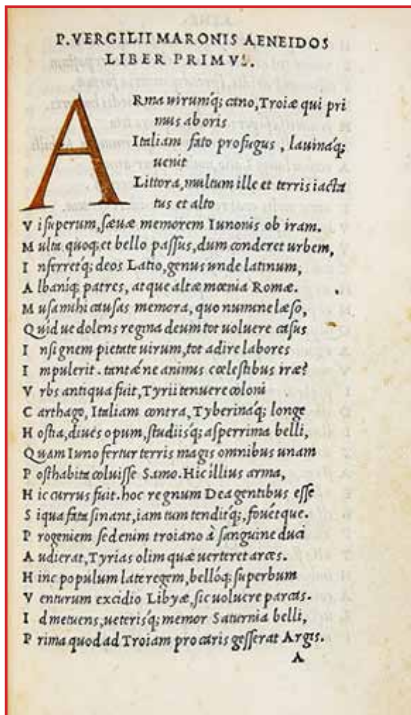 P. VERGILII MARONIS AENEIDOS
LIBER PRIMVS.
ARma uirumq; cano, Troiæ qui pri
mus ab oris
Italiam fato profugus, lauinaq;
uenit
Littora, multum ille et terris iacta
tus et alto
Vi superum, sæuæ memorem Iunonis ob iram.
Multa quoq; et bello passus, dum conderet urbem,
Inferretq; deos Latio, genus unde latinum,
Albaniq; patres, atque altæ mœnia Romæ.
Musa mihi causas memora, quo numine læso,
Quid ue dolens regina deum tot uoluere casus
Insignem pietate uirum, tot adire labores
Impulerit. tantæ ne animus cœlestibus iræ?
Vrbs antiqua fuit, Tyrii tenuere coloni
Carthago, Italiam contra, Tyberinaq; longe
Hostia, diues opum, studiisq; asperrima belli,
Quam Iuno fertur terris magis omnibus unam
Posthabita coluisse Samo. Hic illius arma,
Hic currus fuit. hoc regnum Dea gentibus esse
Si qua fata sinant, iam tum tenditq;, fouétque.
Progeniem sed enim troiano à sanguine duci
Audierat, Tyrias olim quæ uerteret arces.
Hinc populum late regem, bellóq; superbum
Venturum excidio Libyæ, sic uoluere parcas.
Id metuens, ueterisq; memor Saturnia belli,
Prima quod ad Troiam pro caris gesserat Argis.
A